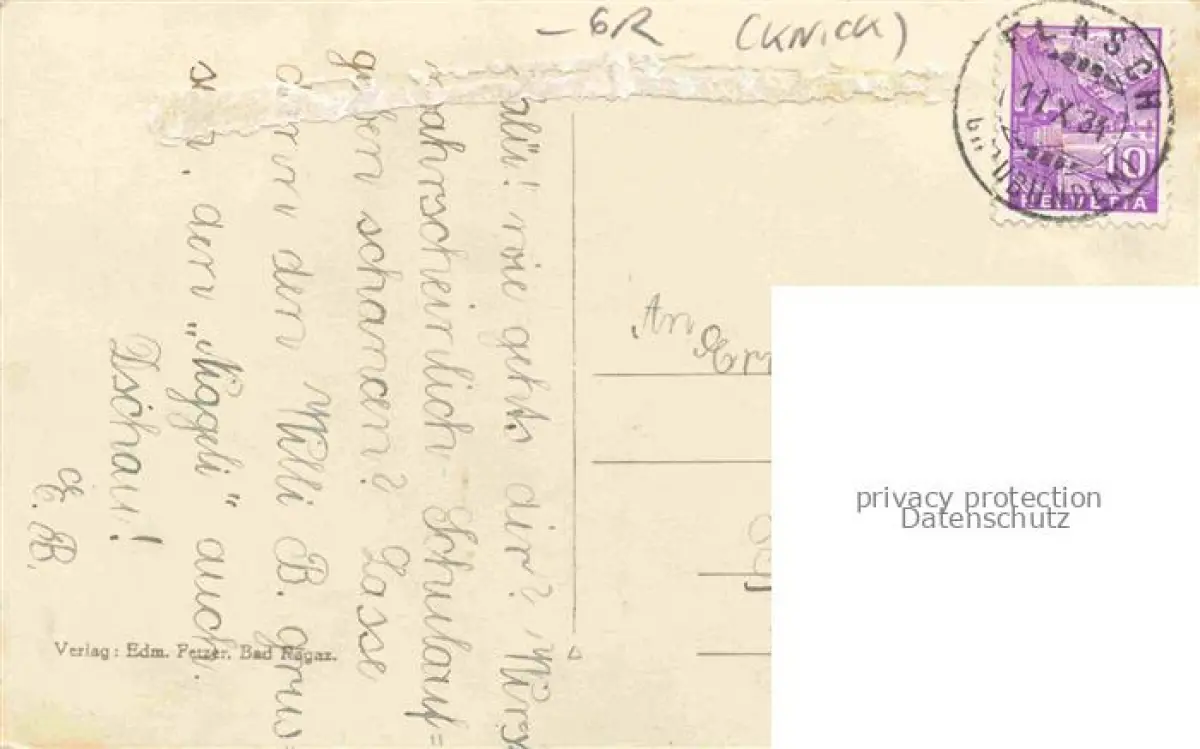 -6R (KNICK)
FLÄSCH
11.X.34
(GRAUBÜNDEN)
10
HELVETIA
wie geht's dir? Wirs
wahrscheinlich Schulauf=
schanzen? Lasse
den Willi B. grüs=
den „Niggeli" auch.
Dschau!
E. B.
An
Verlag: Edm. Fetzer, Bad Ragaz.
privacy protection
Datenschutz